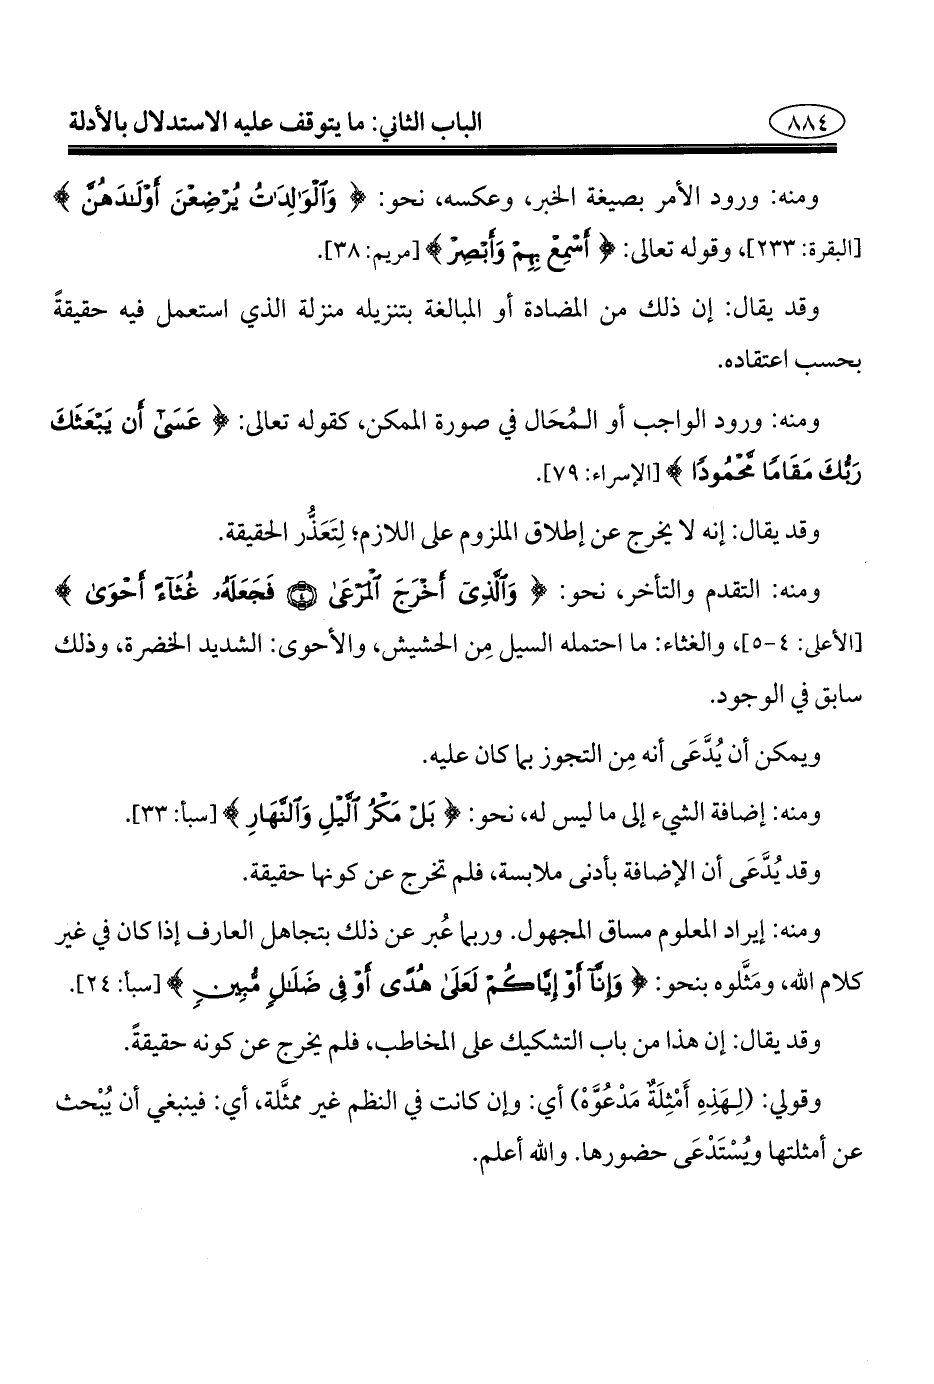 ٨٨٤ الباب الثاني: ما يتوقف عليه الاستدلال بالأدلة
ومنه: ورود الأمر بصيغة الخبر، وعكسه، نحو: ﴿ وَٱلْوَٰلِدَٰتُ يُرْضِعْنَ أَوْلَٰدَهُنَّ ﴾
[البقرة: ٢٣٣]، وقوله تعالى: ﴿ أَسْمِعْ بِهِمْ وَأَبْصِرْ ﴾ [مريم: ٣٨].
وقد يقال: إن ذلك من المضادة أو المبالغة بتنزيله منزلة الذي استعمل فيه حقيقةً
بحسب اعتقاده.
ومنه: ورود الواجب أو الـمُحَال في صورة الممكن، كقوله تعالى: ﴿ عَسَىٰٓ أَن يَبْعَثَكَ
رَبُّكَ مَقَامًا مَّحْمُودًا ﴾ [الإسراء: ٧٩].
وقد يقال: إنه لا يخرج عن إطلاق الملزوم على اللازم؛ لِتَعَذُّر الحقيقة.
ومنه: التقدم والتأخر، نحو: ﴿ وَٱلَّذِىٓ أَخْرَجَ ٱلْمَرْعَىٰ ۝٤ فَجَعَلَهُۥ غُثَآءً أَحْوَىٰ ﴾
[الأعلى: ٤-٥]، والغثاء: ما احتمله السيل مِن الحشيش، والأحوى: الشديد الخضرة، وذلك
سابق في الوجود.
ويمكن أن يُدَّعَى أنه مِن التجوز بما كان عليه.
ومنه: إضافة الشيء إلى ما ليس له، نحو: ﴿ بَلْ مَكْرُ ٱلَّيْلِ وَٱلنَّهَارِ ﴾ [سبأ: ٣٣].
وقد يُدَّعَى أن الإضافة بأدنى ملابسة، فلم تخرج عن كونها حقيقة.
ومنه: إيراد المعلوم مساق المجهول. وربما عُبر عن ذلك بتجاهل العارف إذا كان في غير
كلام الله، ومَثَّلوه بنحو: ﴿ وَإِنَّآ أَوْ إِيَّاكُمْ لَعَلَىٰ هُدًى أَوْ فِى ضَلَٰلٍ مُّبِينٍ ﴾ [سبأ: ٢٤].
وقد يقال: إن هذا من باب التشكيك على المخاطب، فلم يخرج عن كونه حقيقةً.
وقولي: (لِـهَذِهِ أَمْثِلَةٌ مَدْعُوَّهْ) أي: وإن كانت في النظم غير ممثَّلة، أي: فينبغي أن يُبْحث
عن أمثلتها ويُسْتَدْعَى حضورها. والله أعلم.